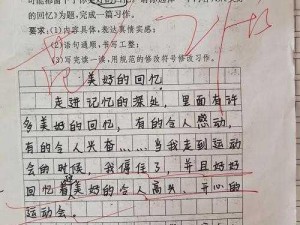 的回忆》为题,完成一篇习作。
要求:(1)内容具体,表达真情实感;
(2)语句通顺,书写工整;
(3)写完读一读,用规范的修改符号修改习作。
美好的回忆
走进记忆的深处,里面有许
多美好的回忆,有的令人感动,
有的令人兴奋……当我走到运动
会的时候,我停住了,并且好好
回忆着美好的令人高兴、开心的
运动会。